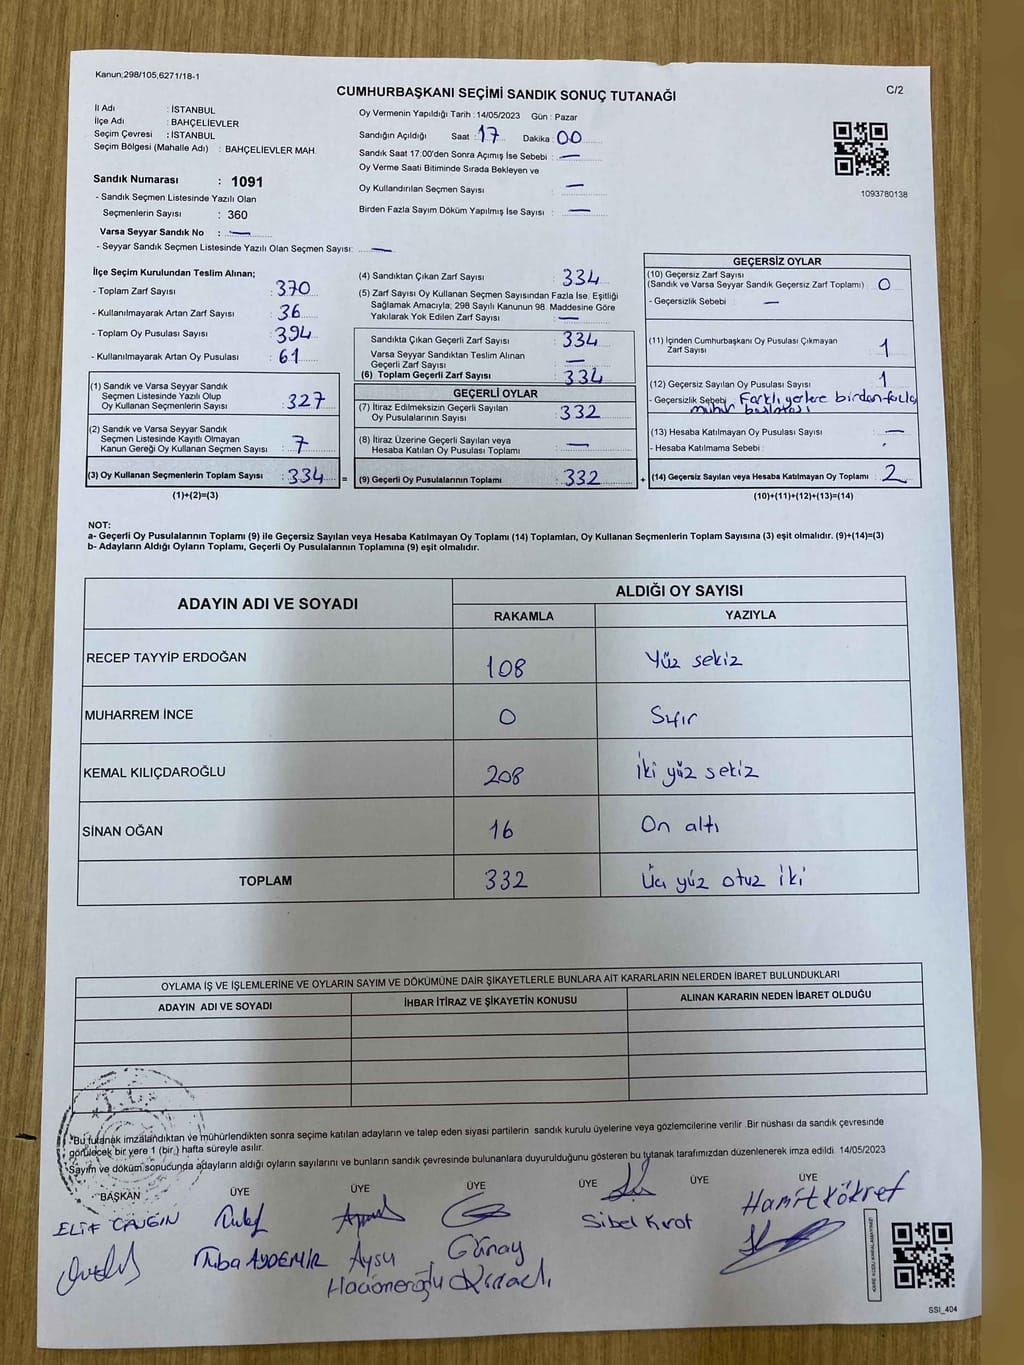 Kanun;298/105;6271/18-1
CUMHURBAŞKANI SEÇİMİ SANDIK SONUÇ TUTANAĞI
C/2
İl Adı : İSTANBUL
İlçe Adı : BAHÇELİEVLER
Seçim Çevresi : İSTANBUL
Seçim Bölgesi (Mahalle Adı) : BAHÇELİEVLER MAH.
Sandık Numarası : 1091
- Sandık Seçmen Listesinde Yazılı Olan
Seçmenlerin Sayısı : 360
Varsa Seyyar Sandık No : —
- Seyyar Sandık Seçmen Listesinde Yazılı Olan Seçmen Sayısı: —
Oy Vermenin Yapıldığı Tarih : 14/05/2023 Gün : Pazar
Sandığın Açıldığı Saat : 17 Dakika : 00
Sandık Saat 17:00'den Sonra Açımış İse Sebebi : —
Oy Verme Saati Bitiminde Sırada Bekleyen ve
Oy Kullandırılan Seçmen Sayısı : —
Birden Fazla Sayım Döküm Yapılmış İse Sayısı : —
1093780138
İlçe Seçim Kurulundan Teslim Alınan;
- Toplam Zarf Sayısı : 370
- Kullanılmayarak Artan Zarf Sayısı : 36
- Toplam Oy Pusulası Sayısı : 394
- Kullanılmayarak Artan Oy Pusulası : 61
(1) Sandık ve Varsa Seyyar Sandık
Seçmen Listesinde Yazılı Olup
Oy Kullanan Seçmenlerin Sayısı : 327
(2) Sandık ve Varsa Seyyar Sandık
Seçmen Listesinde Kayıtlı Olmayan
Kanun Gereği Oy Kullanan Seçmen Sayısı : 7
(3) Oy Kullanan Seçmenlerin Toplam Sayısı : 334 =
(1)+(2)=(3)
(4) Sandıktan Çıkan Zarf Sayısı : 334
(5) Zarf Sayısı Oy Kullanan Seçmen Sayısından Fazla İse, Eşitliği
Sağlamak Amacıyla; 298 Sayılı Kanunun 98. Maddesine Göre
Yakılarak Yok Edilen Zarf Sayısı : —
Sandıkta Çıkan Geçerli Zarf Sayısı : 334
Varsa Seyyar Sandıktan Teslim Alınan
Geçerli Zarf Sayısı : —
(6) Toplam Geçerli Zarf Sayısı : 334
GEÇERLİ OYLAR
(7) İtiraz Edilmeksizin Geçerli Sayılan
Oy Pusulalarının Sayısı : 332
(8) İtiraz Üzerine Geçerli Sayılan veya
Hesaba Katılan Oy Pusulası Toplamı : —
(9) Geçerli Oy Pusulalarının Toplamı : 332 +
GEÇERSİZ OYLAR
(10) Geçersiz Zarf Sayısı
(Sandık ve Varsa Seyyar Sandık Geçersiz Zarf Toplamı) : 0
- Geçersizlik Sebebi : —
(11) İçinden Cumhurbaşkanı Oy Pusulası Çıkmayan
Zarf Sayısı : 1
(12) Geçersiz Sayılan Oy Pusulası Sayısı : 1
- Geçersizlik Sebebi : Farklı yerlere birden fazla
mühür basılması
(13) Hesaba Katılmayan Oy Pusulası Sayısı : —
- Hesaba Katılmama Sebebi :
(14) Geçersiz Sayılan veya Hesaba Katılmayan Oy Toplamı : 2
(10)+(11)+(12)+(13)=(14)
NOT:
a- Geçerli Oy Pusulalarının Toplamı (9) ile Geçersiz Sayılan veya Hesaba Katılmayan Oy Toplamı (14) Toplamları, Oy Kullanan Seçmenlerin Toplam Sayısına (3) eşit olmalıdır. (9)+(14)=(3)
b- Adayların Aldığı Oyların Toplamı, Geçerli Oy Pusulalarının Toplamına (9) eşit olmalıdır.
ADAYIN ADI VE SOYADI ALDIĞI OY SAYISI
RAKAMLA YAZIYLA
RECEP TAYYİP ERDOĞAN 108 Yüz sekiz
MUHARREM İNCE 0 Sıfır
KEMAL KILIÇDAROĞLU 208 İki yüz sekiz
SİNAN OĞAN 16 On altı
TOPLAM 332 Üç yüz otuz iki
OYLAMA İŞ VE İŞLEMLERİNE VE OYLARIN SAYIM VE DÖKÜMÜNE DAİR ŞİKAYETLERLE BUNLARA AİT KARARLARIN NELERDEN İBARET BULUNDUKLARI
ADAYIN ADI VE SOYADI İHBAR İTİRAZ VE ŞİKAYETİN KONUSU ALINAN KARARIN NEDEN İBARET OLDUĞU
*Bu tutanak imzalandıktan ve mühürlendikten sonra seçime katılan adayların ve talep eden siyasi partilerin sandık kurulu üyelerine veya gözlemcilerine verilir .Bir nüshası da sandık çevresinde
görülecek bir yere 1 (bir,) hafta süreyle asılır.
*Sayım ve döküm sonucunda adayların aldığı oyların sayılarını ve bunların sandık çevresinde bulunanlara duyurulduğunu gösteren bu tutanak tarafımızdan düzenlenerek imza edildi. 14/05/2023
BAŞKAN ÜYE ÜYE ÜYE ÜYE ÜYE ÜYE
ELİF Hamit Kökref
Sibel Kırot
Tuba AYDEMİR Aysu Günay
Hacıömeroğlu
KARE KODU KARALAMAYINIZ
SSI_404